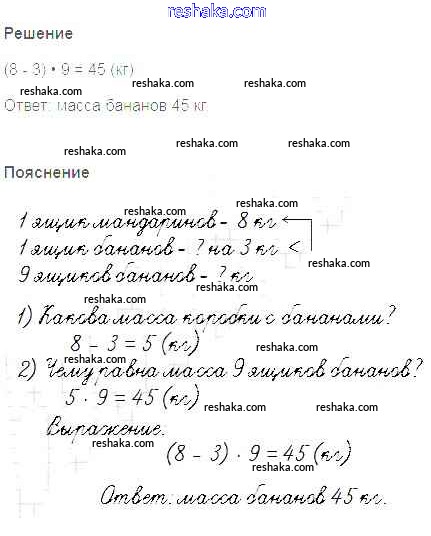 reshaka.com
Решение
(8 - 3) • 9 = 45 (кг)
reshaka.com reshaka.com
Ответ: масса бананов 45 кг.
reshaka.com reshaka.com
reshaka.com
Пояснение
reshaka.com
1 ящик мандаринов - 8 кг
1 ящик бананов - ? на 3 кг <
reshaka.com
9 ящиков бананов - ? кг
reshaka.com
1) Какова масса коробки с бананами?
8 - 3 = 5 (кг)
reshaka.com reshaka.com
2) Чему равна масса 9 ящиков бананов?
5 · 9 = 45 (кг)
reshaka.com reshaka.com
Выражение.
reshaka.com
(8 - 3) · 9 = 45 (кг)
reshaka.com
Ответ: масса бананов 45 кг.
reshaka.com